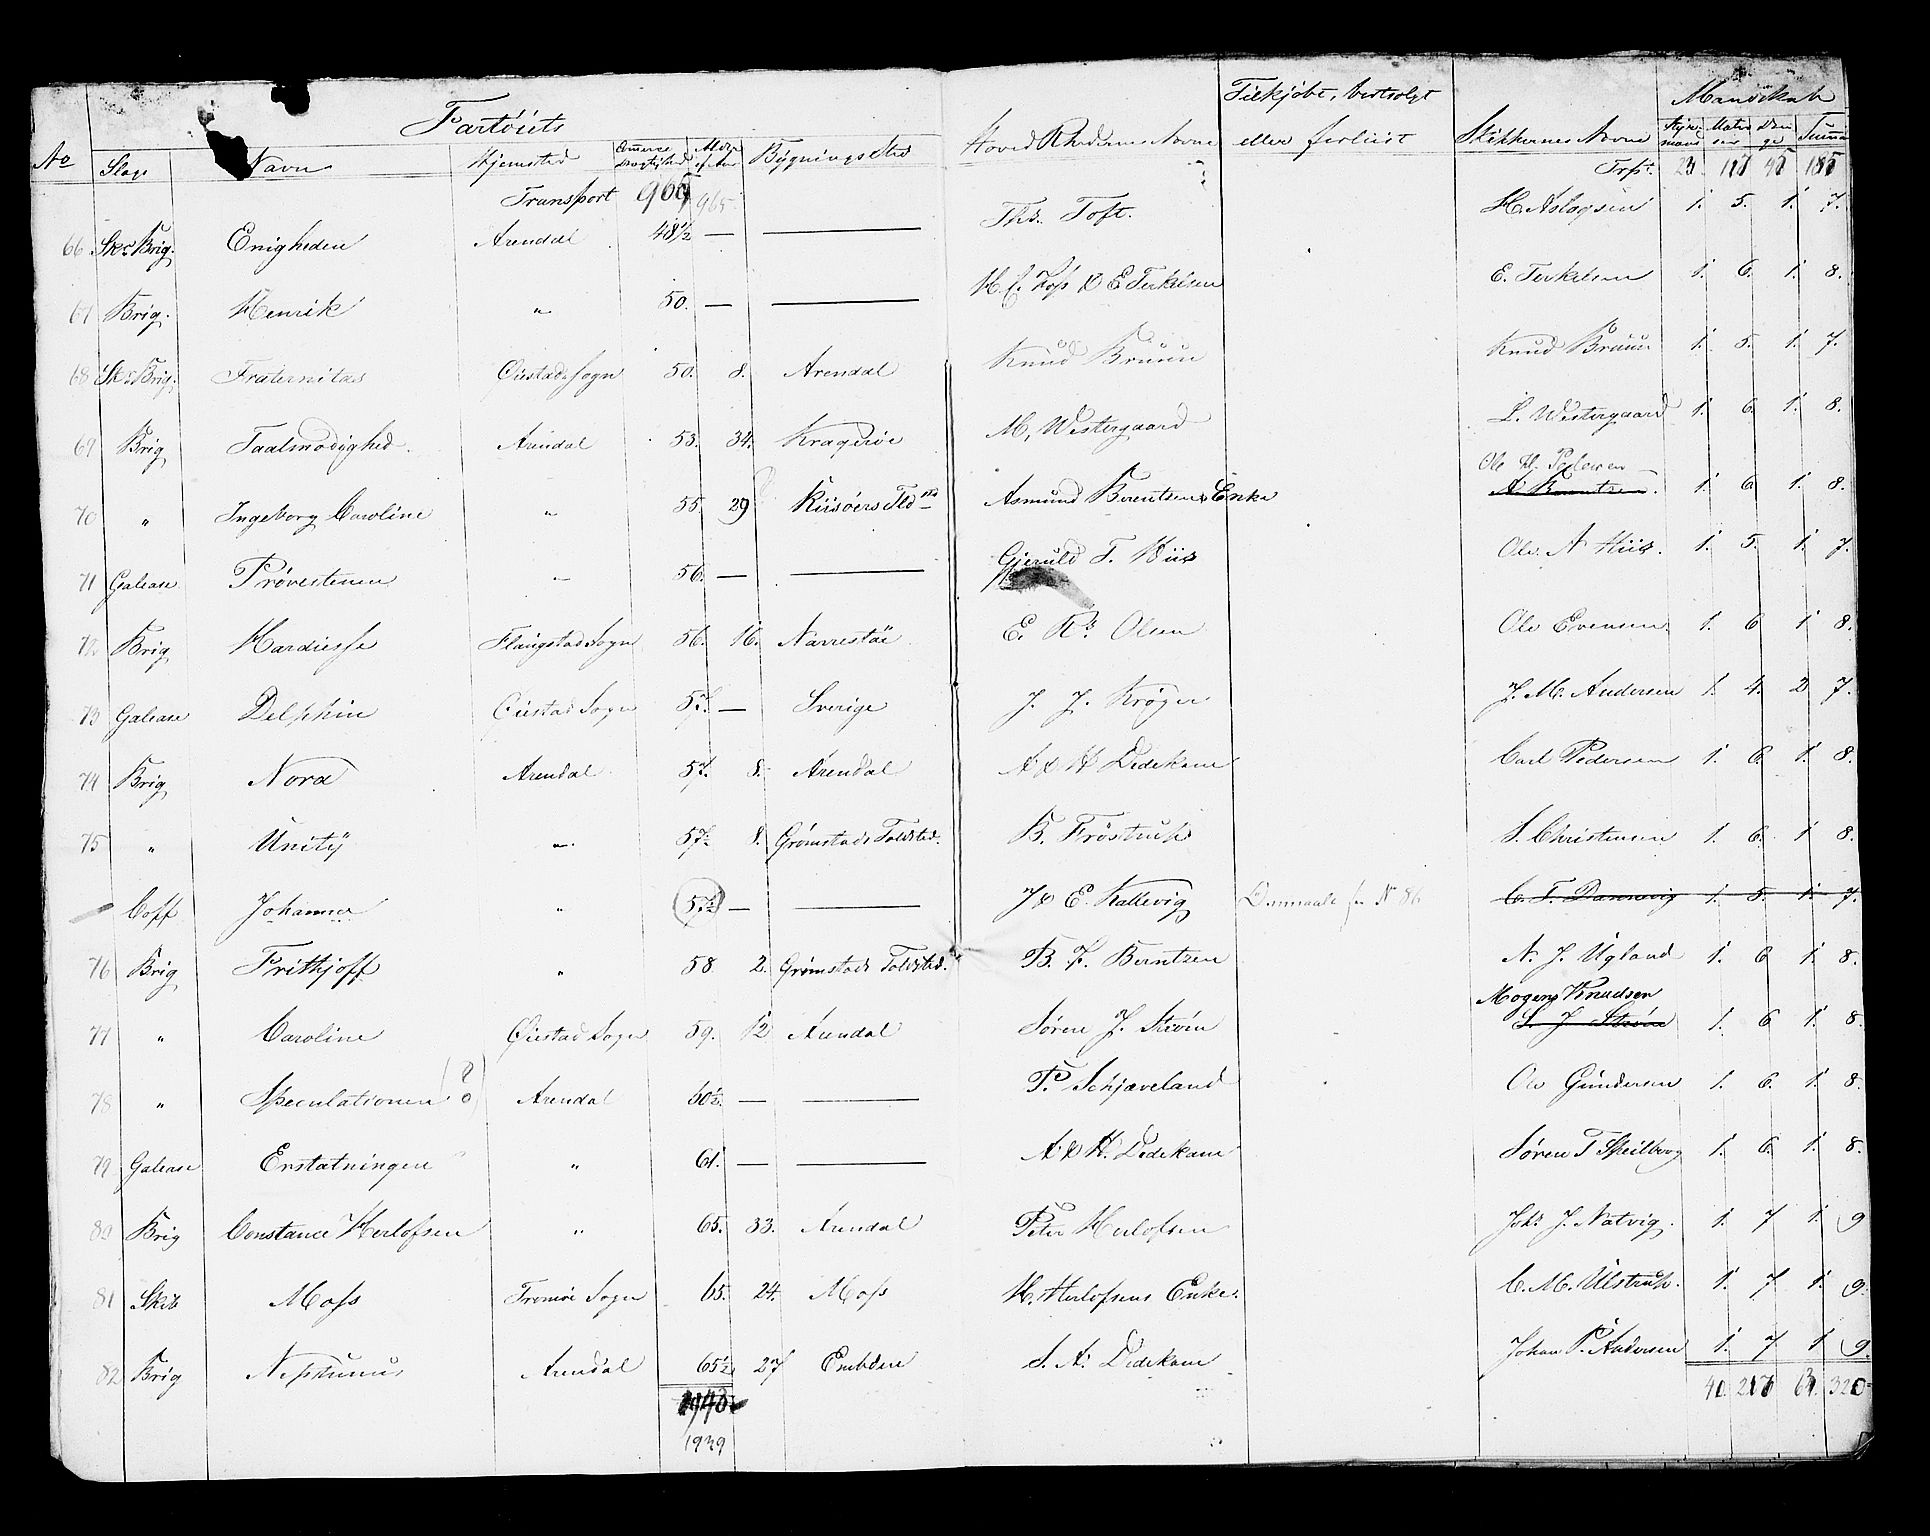 Fartøiets
Tilkjøbt, bortsolgt
Mandskab
No Slags Navn Hjemsted Commerce Drægtighed Alder Bygnings Sted Hoved Rhedernes Navne eller forliist Skibbernes Navne Styrmænd Matroser Drenge Summa
Transport 965 965 Trspt. 23 117 45 185
66 Skr Brig. Enigheden Arendal 48½ — — Ths. Toft. H. Aslagsen 1. 5. 1. 7.
67 Brig. Henrik " 50. — — H. C. Foss & E Terkilsen E. Terkilsen 1. 6. 1. 8.
68 Skr Brig. Fraternitas Øiestad Sogn 50. 8. Arendal Knud Bruun Knud Bruun 1. 5. 1. 7.
69 Brig Taalmodighed Arendal 53. 34. Kragerøe M. Westergaard L. Westergaard 1. 6. 1. 8.
Ole H. Pedersen
70 " Ingeborg Caroline " 55. 29 Riisøers Tldstd Asmund Berentsens Enke A Berentsen. 1. 6. 1. 8
71 Galease Prøvestenen " 56. — — Gjeruld T. Hiis Ole A Hiis. 1. 5. 1. 7.
72 Brig Hardiesse Flangstad Sogn 56. 16. Narrestøe E. Rs. Olsen Ole Evensen 1. 6 1 8.
73 Galease Delphin Øiestad Sogn 57. — Sverige J. J. Krøger J. M. Andersen 1. 4. 2 7.
74 Brig Nora Arendal 57. 8. Arendal A & H Dedekam Carl Pedersen 1. 6. 1. 8.
75 " Unity " 57. 8. Grømstads Toldsted. B. Frøstrup S. Christensen 1. 6. 1 8.
Coff Johanna " 57½ — — J & E. Kallevig Ommaalt se N 86 C. F. Dannevig 1. 5. 1. 7.
76 Brig Frithjoff " 58. 2. Grømstads Toldsted. B. F. Berntzen N. J. Ugland 1. 6 1. 8.
Mogens Knudsen
77 " Caroline Øiestad Sogn 59. 12 Arendal Søren J. Strøm S. J Strøm 1. 6 1. 8.
78 " Speculationen Arendal 60½. — — P. Schjæveland Ole Gundersen 1. 6. 1. 8
79 Galease Erstatningen " 61. — — A & H. Dedekam Søren T Skeilberg 1. 6. 1. 8.
80 Brig Constance Herlofsen " 65. 33. Arendal Peter Herlofsen Johs J. Natvig. 1. 7 1. 9
81 Skib Moss Tromøe Sogn 65. 24. Moss H. Herlofsens Enke. C. M. Ulstrup. 1. 7 1. 9.
82 Brig Neptunus Arendal 65½ 27 Embden S. A. Dedekam Johan P. Andersen 1. 7 1 9.
40. 217 63. 320
1939